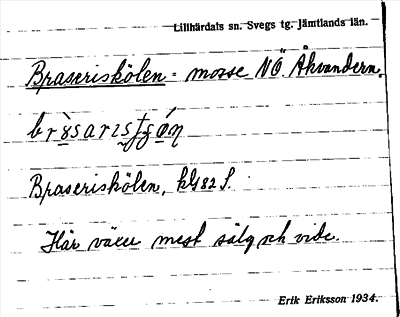 Lillhärdals sn. Svegs tg. Jämtlands län.
Braseriskölen = mosse NÖ. Åkvandern.
Braseriskölen, kbl 82 S.
Här växer mest sälg och vide.
Erik Eriksson 1934.